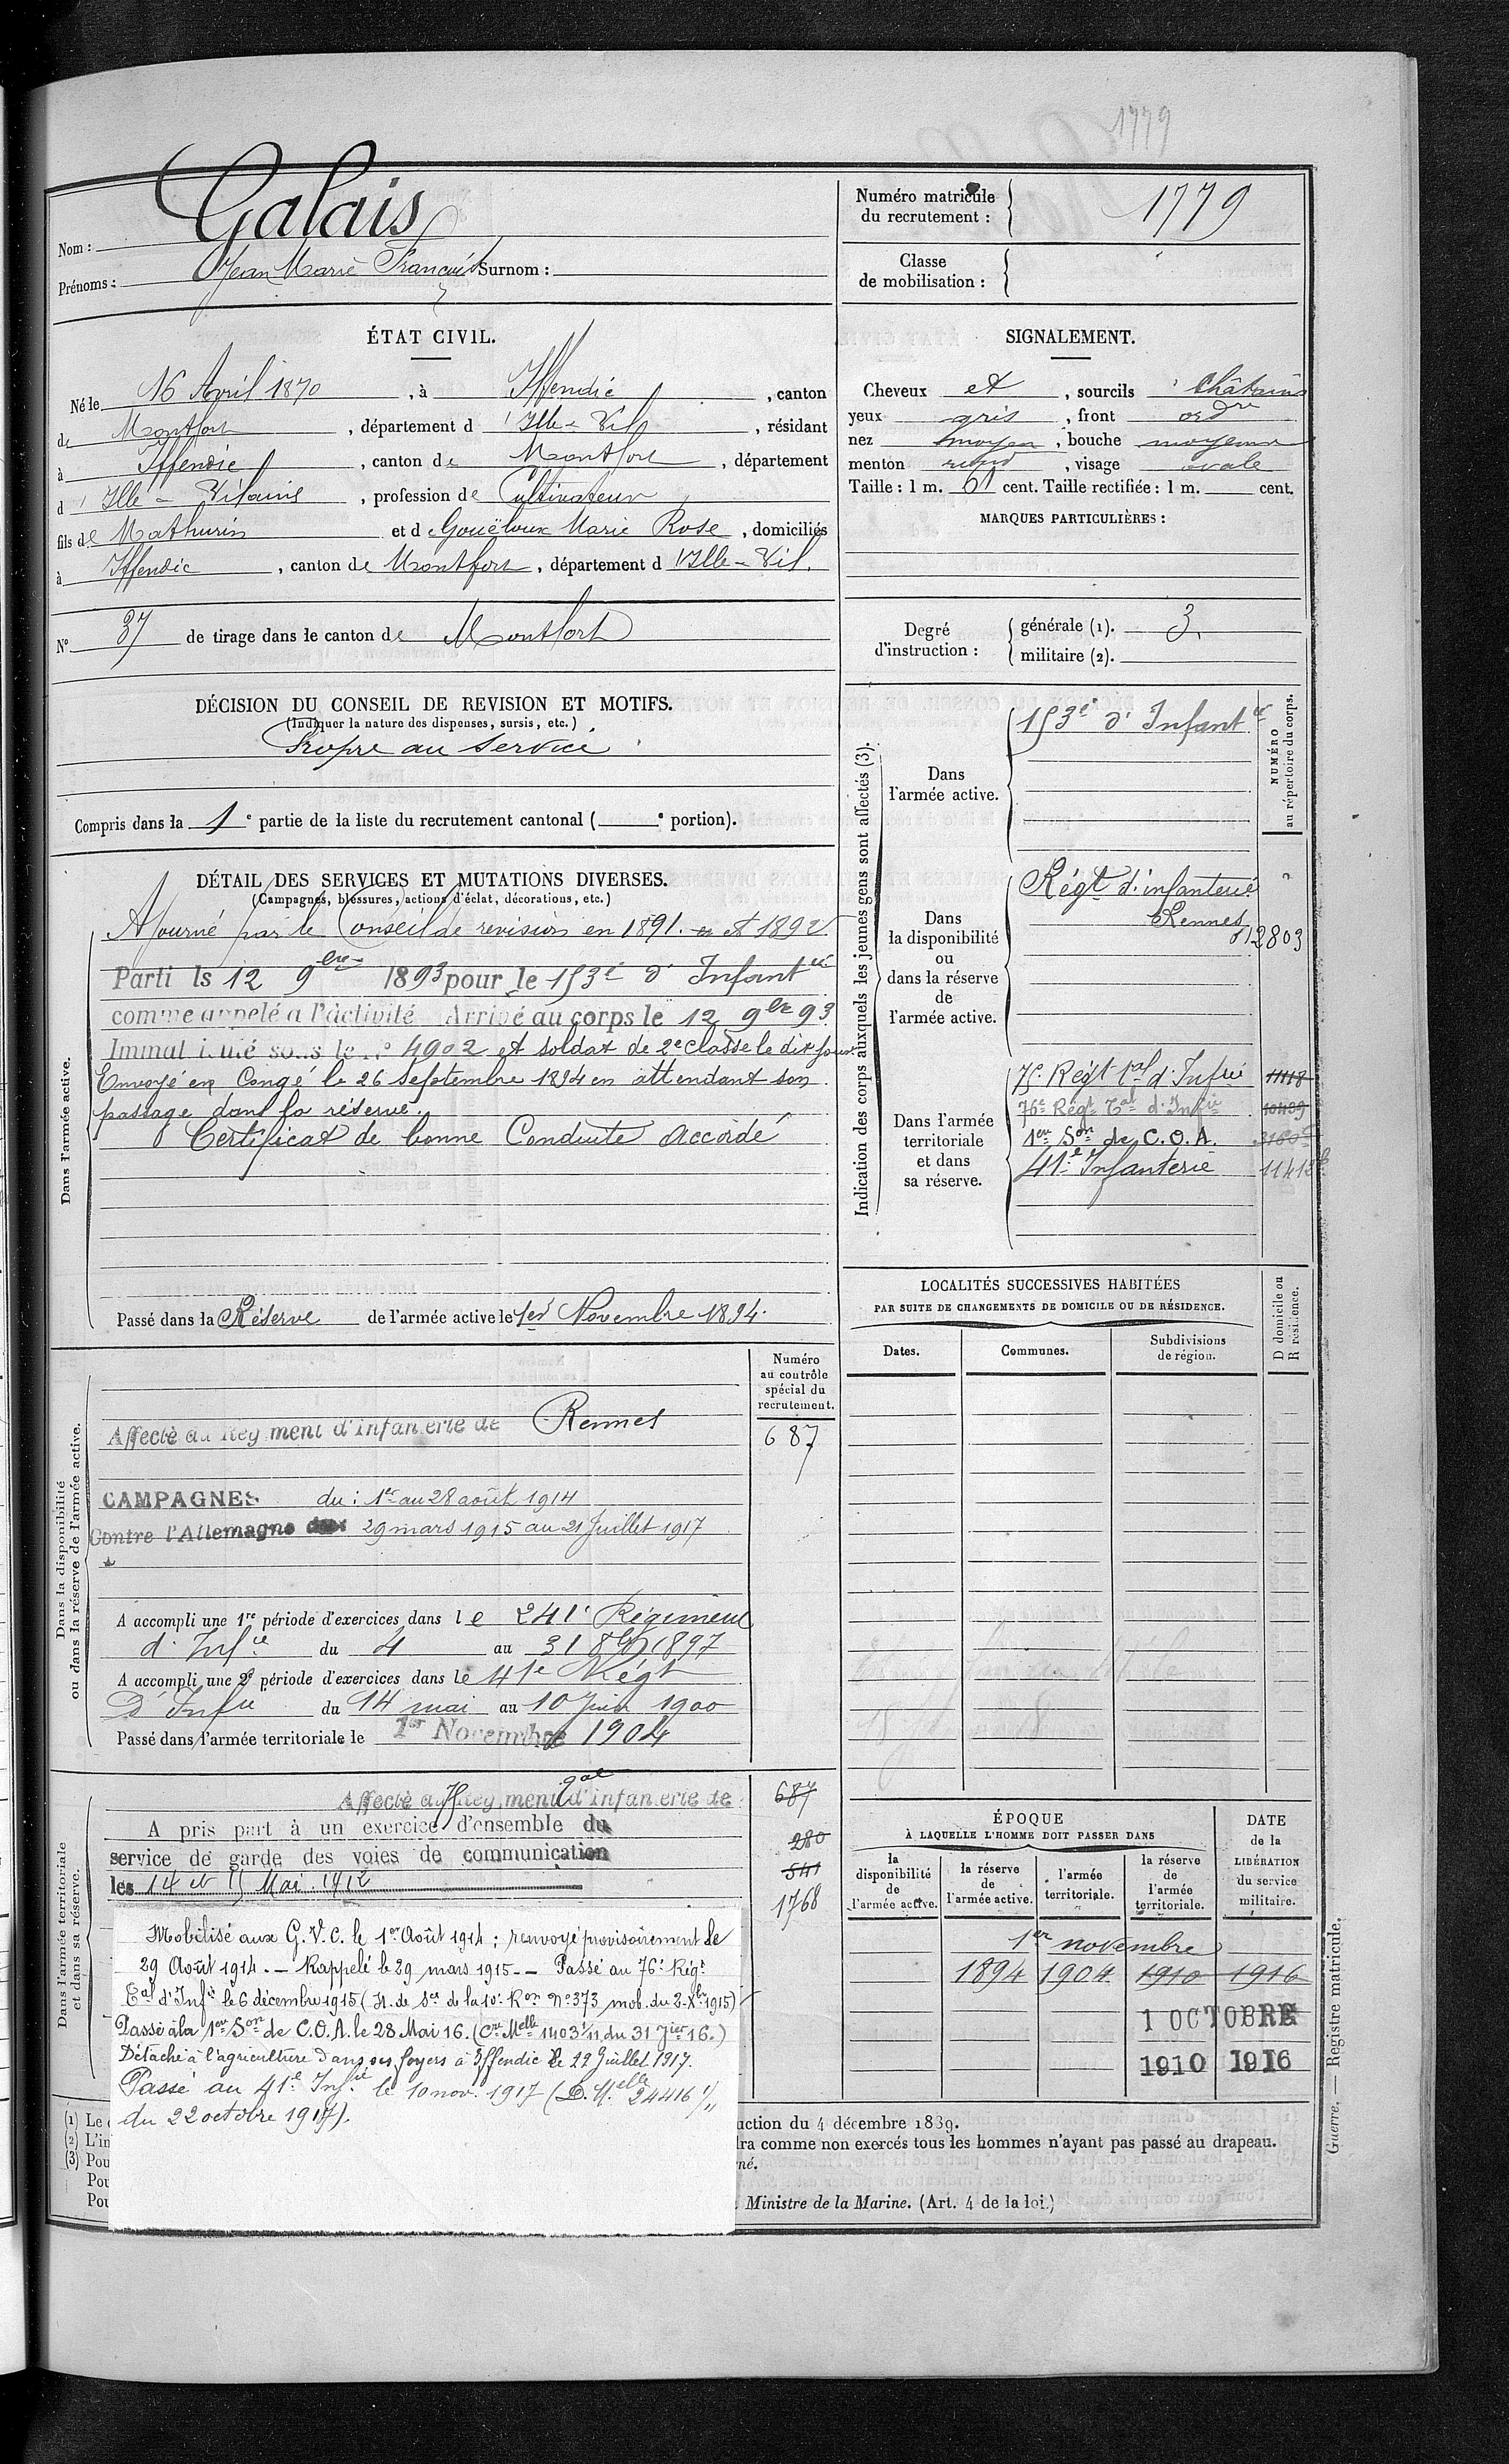 1779
Nom : Galais
Prénoms : Jean Marie François Surnom :
Numéro matricule du recrutement : 1779
Classe de mobilisation :
ÉTAT CIVIL.
Né le 16 Avril 1870, à Iffendic, canton
de Montfort, département d'Ille-Vil, résidant
à Iffendic, canton de Montfort, département
d'Ille-Vilaine, profession de Cultivateur
fils de Mathurin et de Gouëloux Marie Rose, domiciliés
à Iffendic, canton de Montfort, département d'Ille-Vil.
N° 37 de tirage dans le canton de Montfort
SIGNALEMENT.
Cheveux et, sourcils châtains
yeux gris, front ordre
nez moyen, bouche moyenne
menton rond, visage ovale
Taille : 1 m. 61 cent. Taille rectifiée : 1 m. cent.
MARQUES PARTICULIÈRES :
Degré d'instruction : générale (1). 3.
militaire (2).
DÉCISION DU CONSEIL DE REVISION ET MOTIFS.
(Indiquer la nature des dispenses, sursis, etc.)
Propre au service
Compris dans la 1e partie de la liste du recrutement cantonal ( e portion).
DÉTAIL DES SERVICES ET MUTATIONS DIVERSES.
(Campagnes, blessures, actions d'éclat, décorations, etc.)
Dans l'armée active.
Ajourné par le Conseil de revision en 1891. et 1892
Parti le 12 9bre 1893 pour le 153e d'Infantie
comme appelé à l'activité Arrivé au corps le 12 9bre 93
Immatriculé sous le N° 4902 et soldat de 2e classe le dit jour.
Envoyé en Congé le 26 Septembre 1894 en attendant son
passage dans la réserve.
Certificat de bonne Conduite Accordé
Passé dans la Réserve de l'armée active le 1er Novembre 1894.
Indication des corps auxquels les jeunes gens sont affectés (3).
NUMÉRO au répertoire du corps.
Dans l'armée active.
153e d'Infantie
Dans la disponibilité ou dans la réserve de l'armée active.
Régt d'infanterie
Rennes
12803
Dans l'armée territoriale et dans sa réserve.
75e Régt Tal d'Infie 11118
76e Régt Tal d'Infie 10489
1ere Son de C.O.A.
41e Infanterie
LOCALITÉS SUCCESSIVES HABITÉES
PAR SUITE DE CHANGEMENTS DE DOMICILE OU DE RÉSIDENCE.
Dates.
Communes.
Subdivisions de région.
D domicile ou R résidence.
Dans la disponibilité ou dans la réserve de l'armée active.
Numéro au contrôle spécial du recrutement.
Affecté au Régiment d'Infanterie de Rennes
687
CAMPAGNES du : 1er au 28 août 1914
Contre l'Allemagne 29 mars 1915 au 21 Juillet 1917
A accompli une 1re période d'exercices dans le 241e Régiment
d'Infie du 4 au 31 8bre 1897
A accompli une 2e période d'exercices dans le 41e Régt
d'Infie du 14 mai au 10 Juin 1900
Passé dans l'armée territoriale le 1er Novembre 1904
Dans l'armée territoriale et dans sa réserve.
Affecté au Régiment tal d'Infanterie de
687
A pris part à un exercice d'ensemble du
service de garde des voies de communication
les 14 et 15 Mai 1912
280
541
1768
Mobilisé aux G.V.C. le 1er Août 1914 ; renvoyé provisoirement le
29 Août 1914. — Rappelé le 29 mars 1915 — Passé au 76e Régt
Tal d'Infie le 6 décembre 1915 (N. de Ser de la 10e Ron N° 373 mob. du 2-Xbre 1915)
Passé à la 1ere Son de C.O.A. le 28 Mai 16. (Cre Melle 1403 1/11 du 31 Jier 16.)
Détaché à l'agriculture dans ses foyers à Iffendic le 22 Juillet 1917.
Passé au 41e Infie le 10 nov. 1917 (D. Melle 24416 1/11
du 22 octobre 1917).
ÉPOQUE
À LAQUELLE L'HOMME DOIT PASSER DANS
la disponibilité de l'armée active.
la réserve de l'armée active.
l'armée territoriale.
la réserve de l'armée territoriale.
DATE de la LIBÉRATION du service militaire.
1er novembre
1894 1904 1910 1916
1 OCTOBRE
1910 1916
(1) Le
(2) L'in
(3) Pou
Pou
Pou
uction du 4 décembre 1889.
dra comme non exercés tous les hommes n'ayant pas passé au drapeau.
né.
Ministre de la Marine. (Art. 4 de la loi.)
Guerre. — Registre matricule.